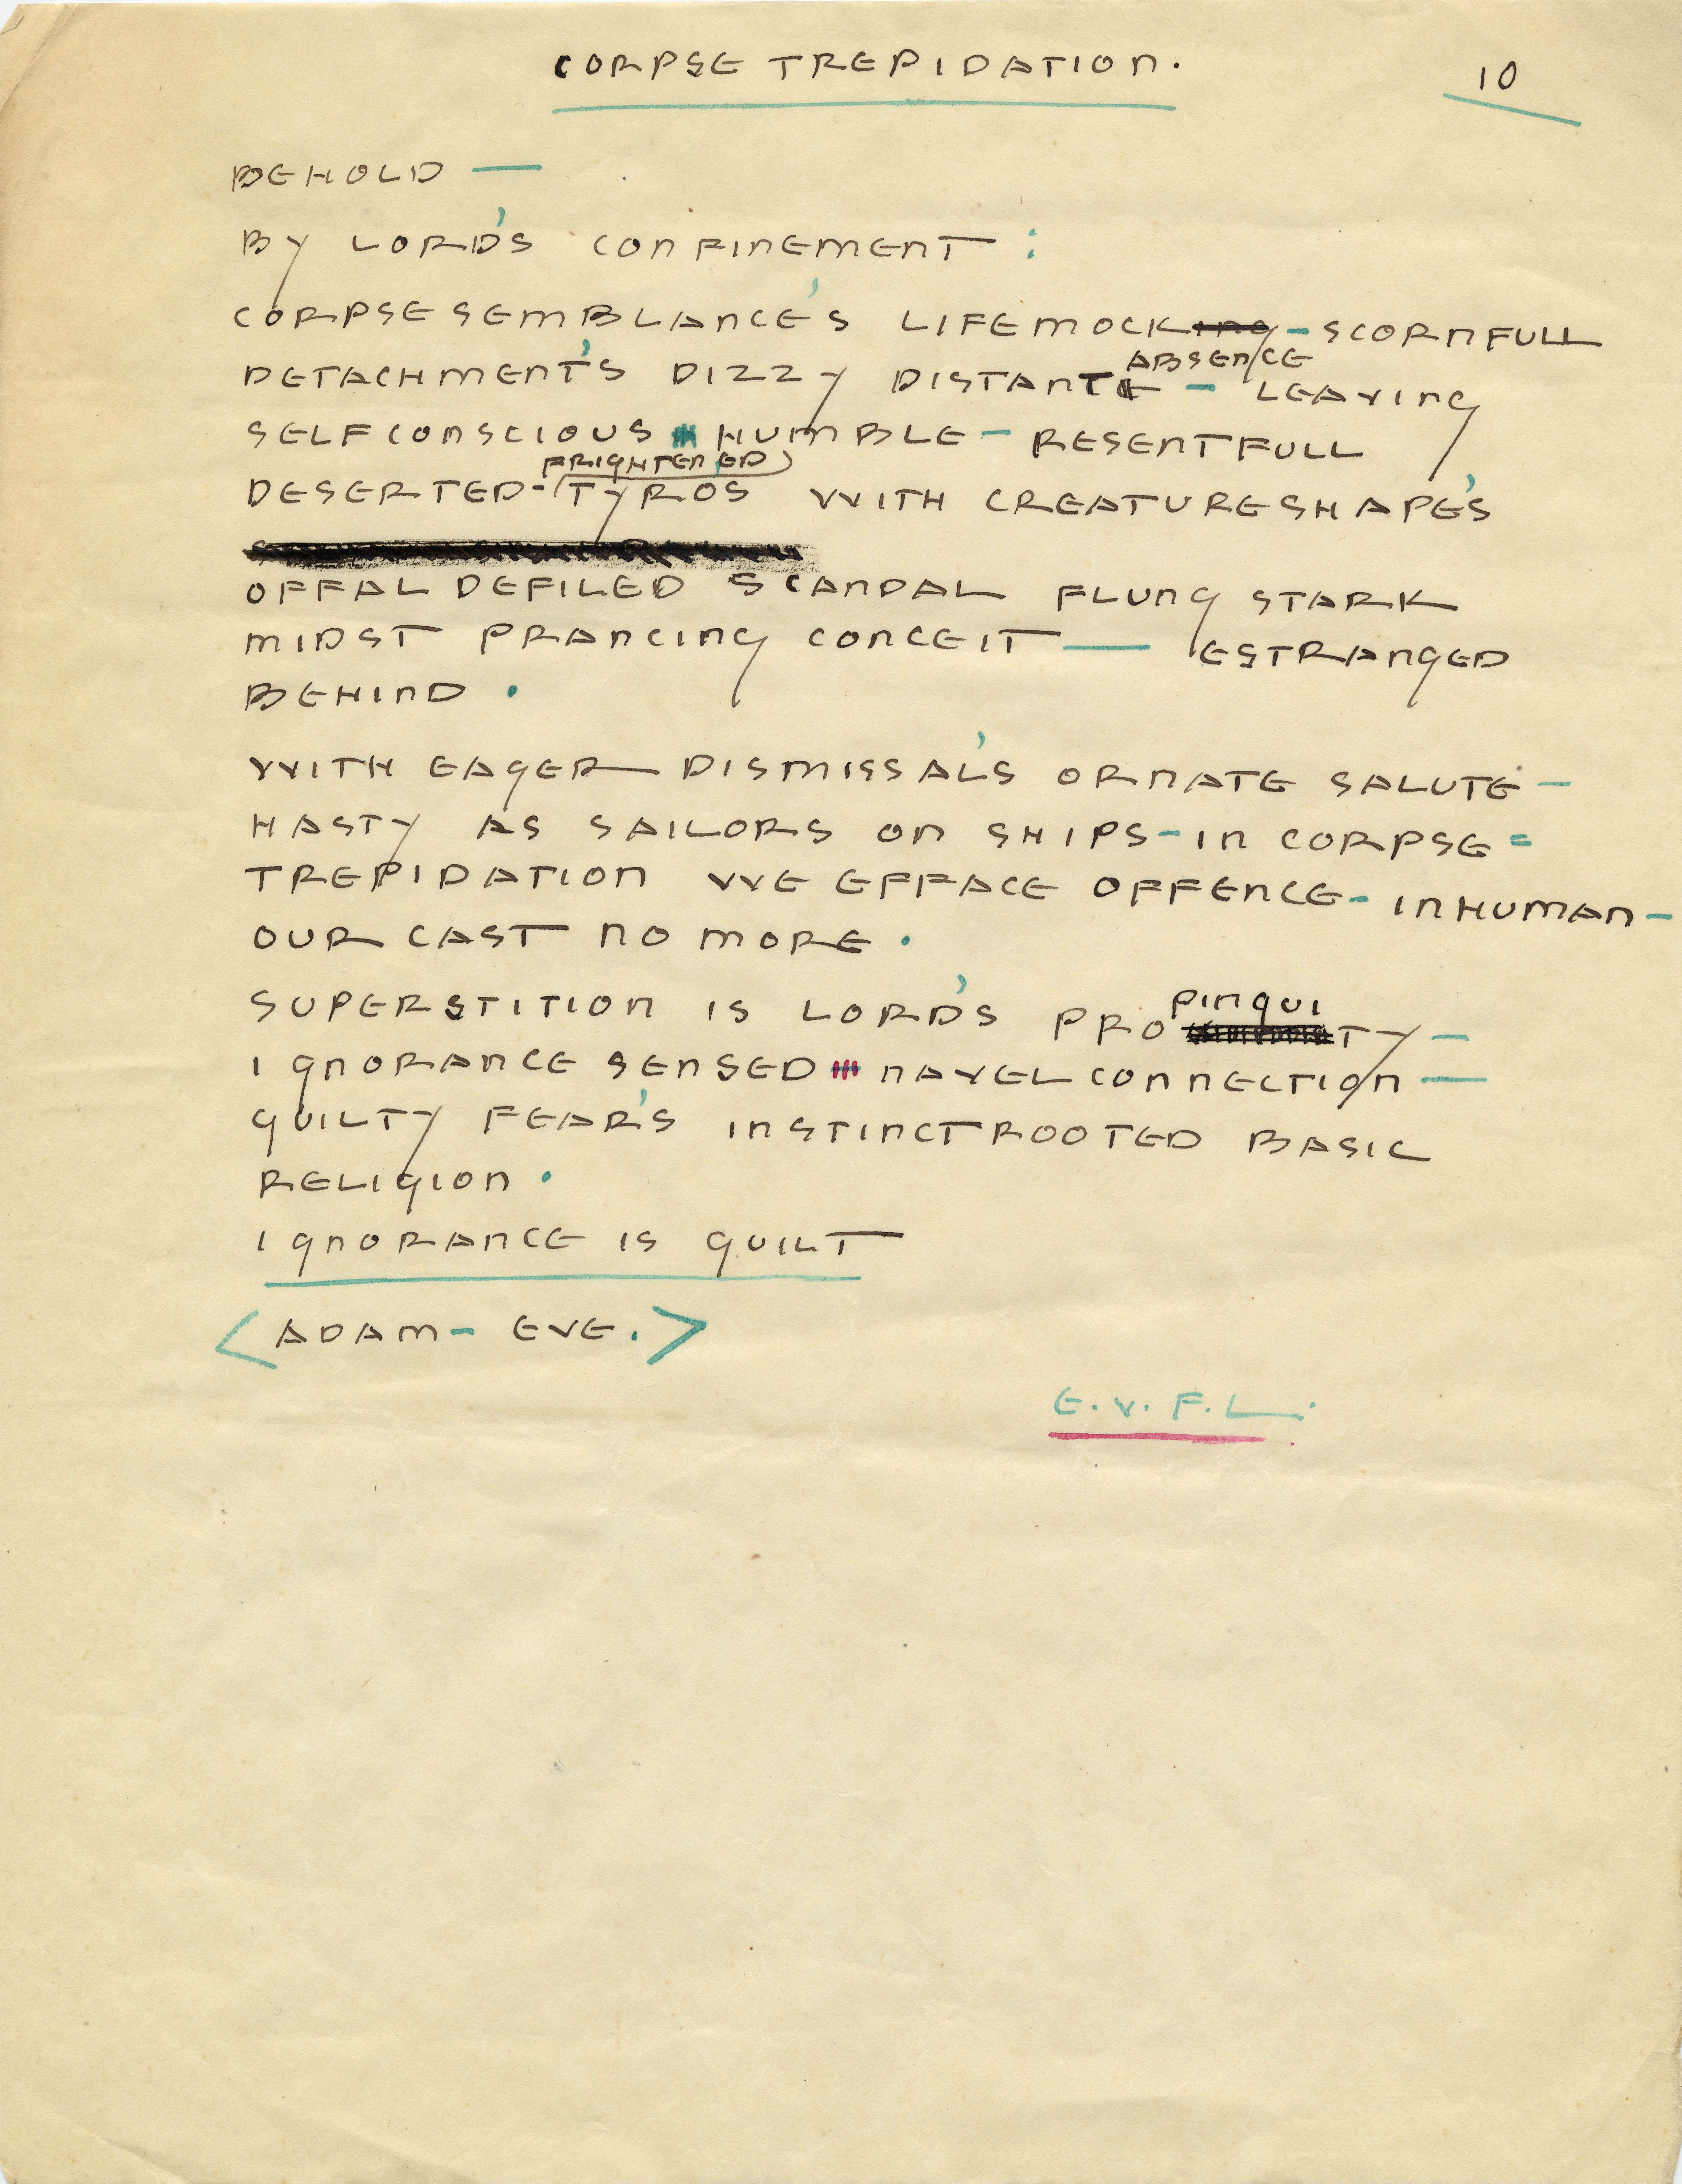 CORPSE TREPIDATION.
10
BEHOLD —
BY LORD'S CONFINEMENT :
CORPSESEMBLANCE'S LIFEMOCKING – SCORNFULL
ABSENCE
DETACHMENT'S DIZZY DISTANT – LEAVING
SELFCONSCIOUS HUMBLE – RESENTFULL
FRIGHTENED
DESERTED - TYROS WITH CREATURESHAPE'S
OFFAL DEFILED SCANDAL FLUNG STARK
MIDST PRANCING CONCEIT — ESTRANGED
BEHIND .
WITH EAGER DISMISSAL'S ORNATE SALUTE –
HASTY AS SAILORS ON SHIPS – IN CORPSE =
TREPIDATION WE EFFACE OFFENCE – INHUMAN –
OUR CAST NO MORE .
PINQUI
SUPERSTITION IS LORD'S PRO TY –
IGNORANCE SENSED NAVELCONNECTION —
GUILTY FEAR'S INSTINCTROOTED BASIC
RELIGION .
IGNORANCE IS GUILT
< ADAM – EVE. >
E. V. F. L.